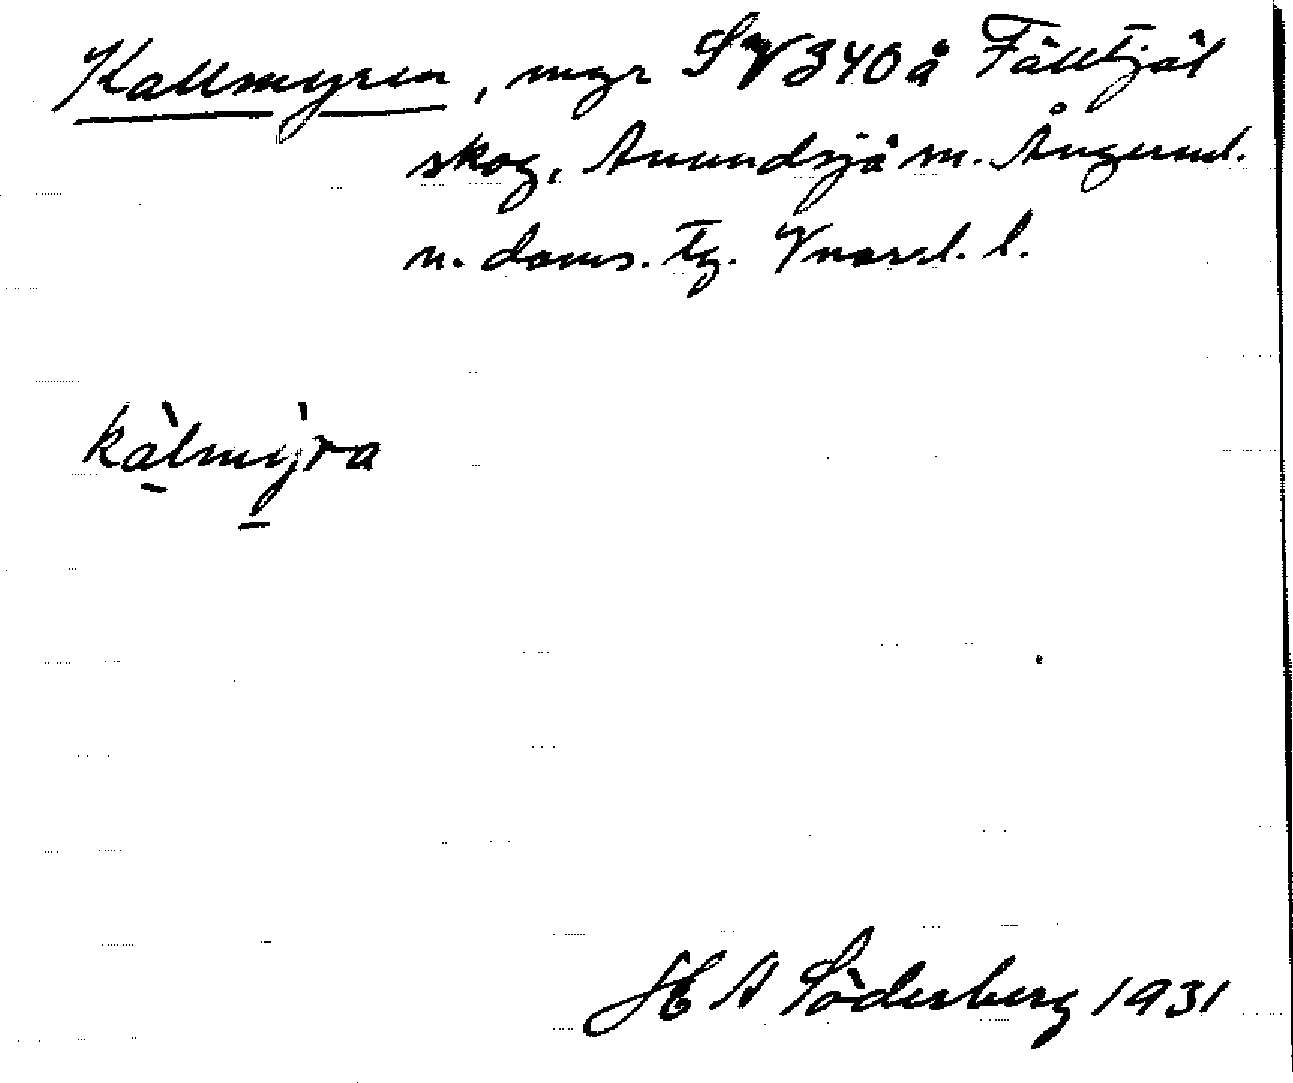 Kallmyren, myr SV 340 å Fälltjäl
skog, Anundsjö sn. Ångerml.
n. doms. tg. Vnorrl. l.
kàlmỳra
H A Söderberg 1931